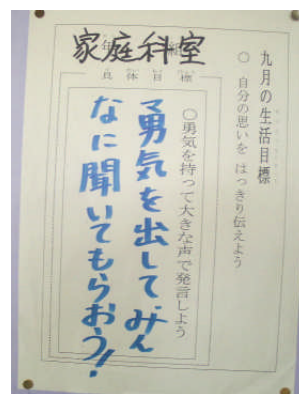 九月の生活目標
○ 自分の思いを はっきり伝えよう
家庭科室
具体目標
○勇気を持って大きな声で発言しよう
勇気を出して、みん
なに聞いてもらおう!!